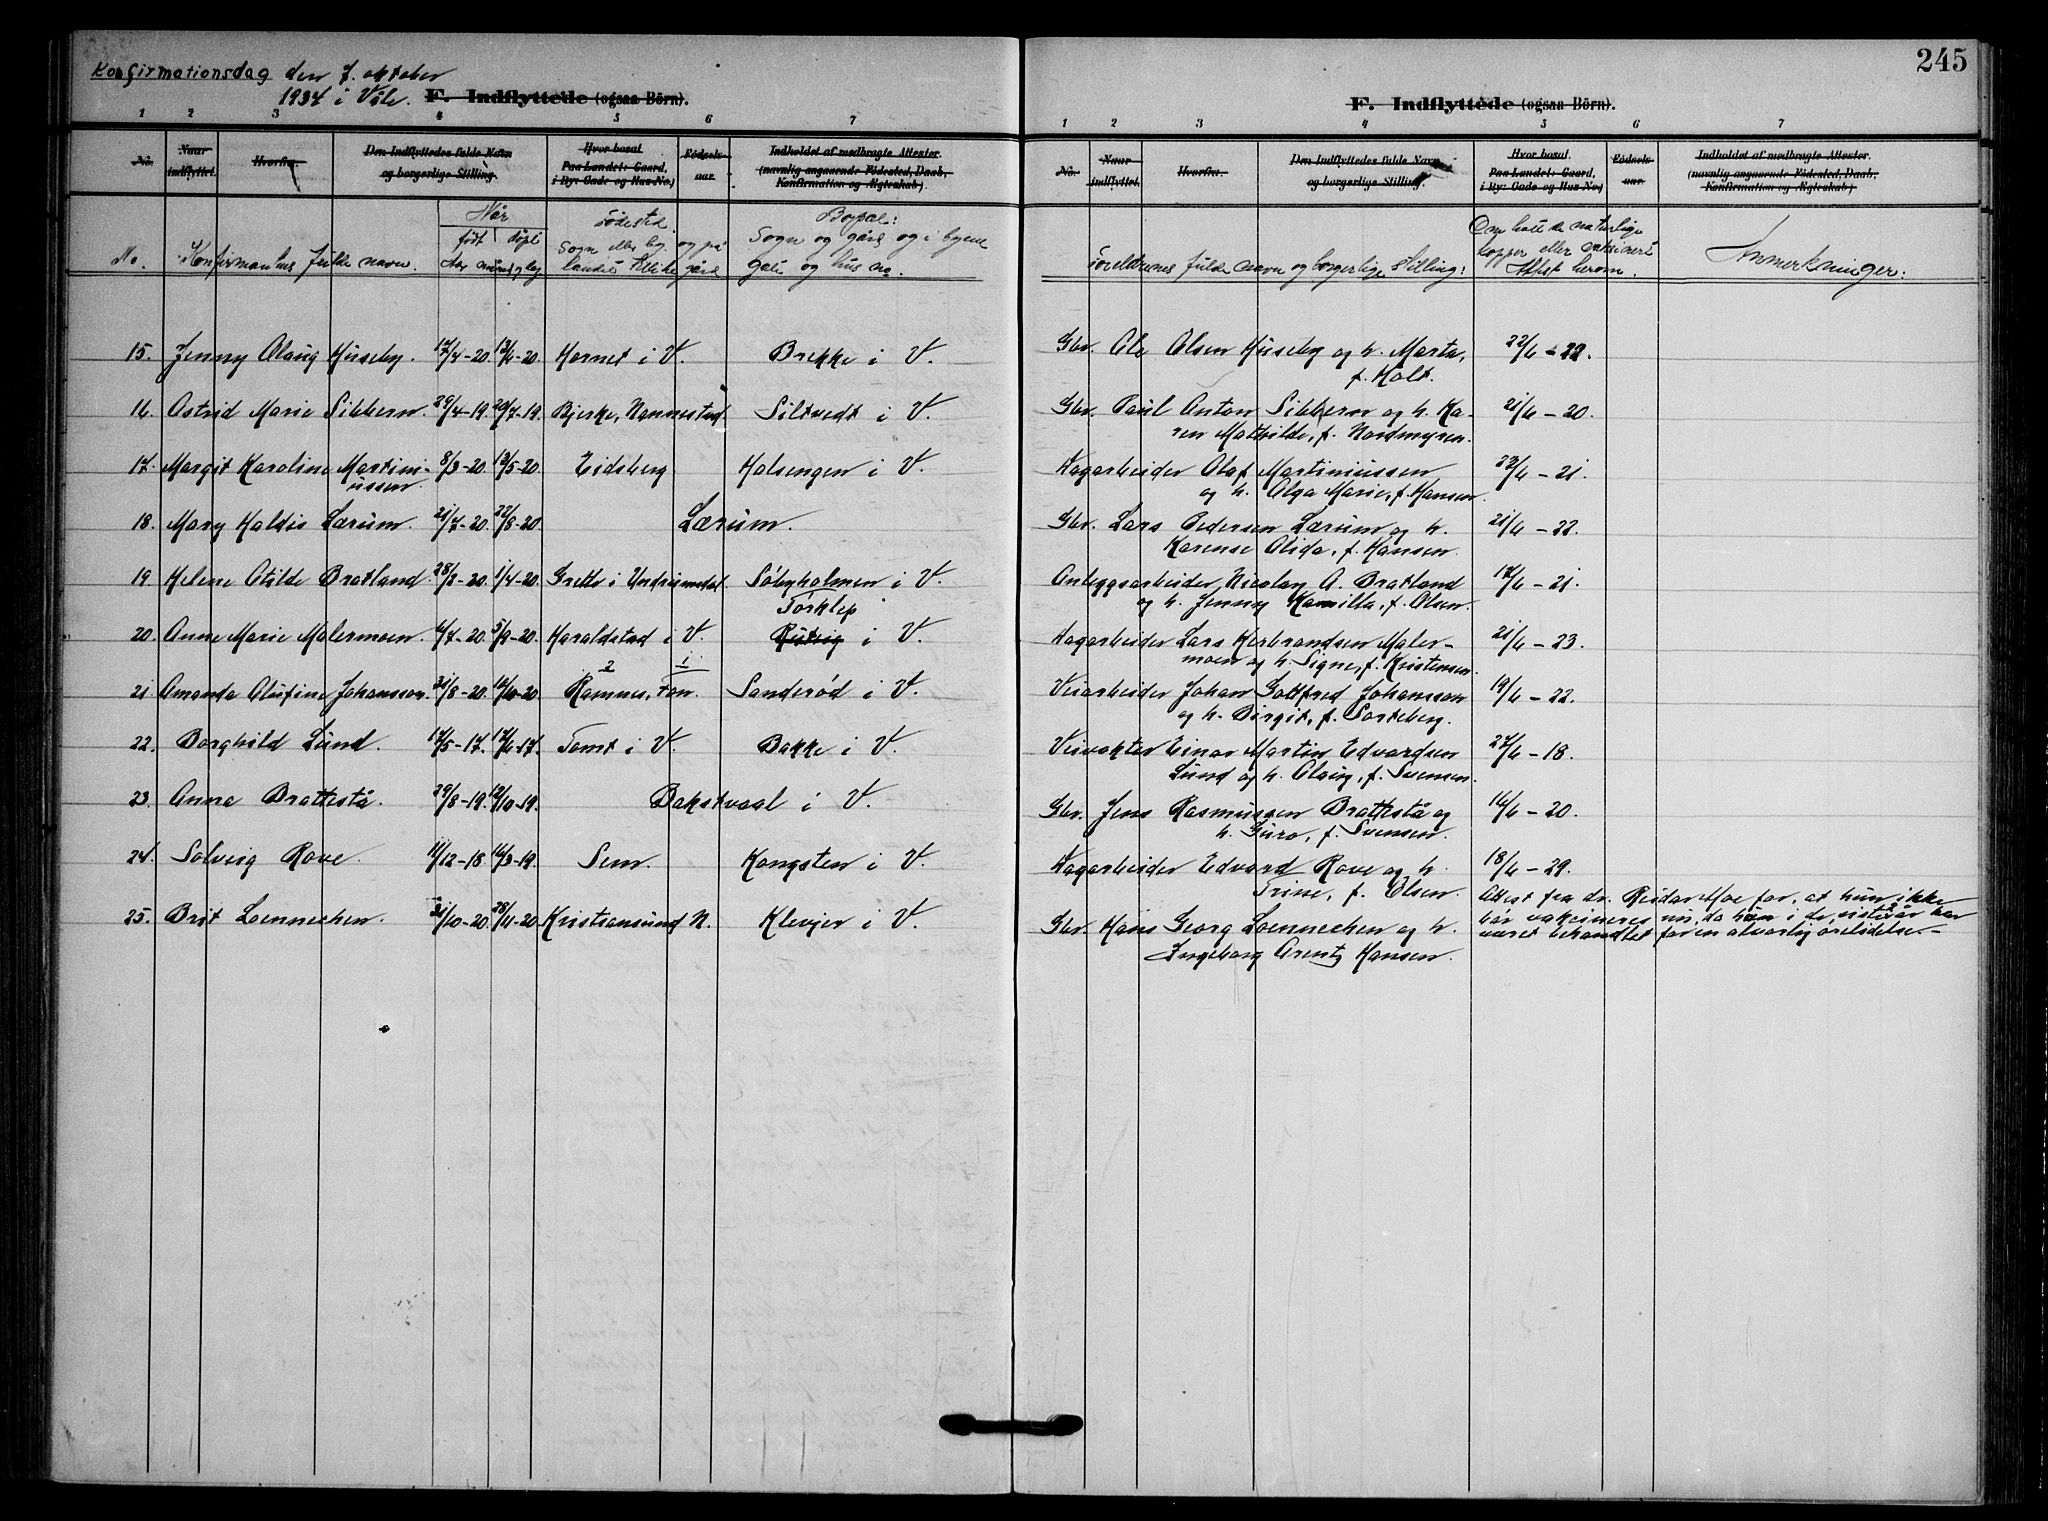 245
Konfirmationsdag den 7. oktober
1934 i Våle.
F. Indflyttede (ogsaa Börn).
1 2 3 4 5 6 7
No. Naar indflyttet. Hvorfra. Den Indflyttedes fulde Navn og borgerlige Stilling. Hvor bosat. Paa Landet: Gaard, i By: Gade og Hus-No.) Födsels-aar. Indholdet af medbragte Attester. (navnlig angaaende Födested, Daab, Konfirmation og Ægteskab)
No. Konfirmantens fulde navn. Når født døpt Fødested Sogn eller by. og på landet tillike gård Bopæl: Sogn og gård og i byene Gate og hus no.
15. Jenny Olaug Huseby. 17/4-20. 13/6-20. Hornet i V. Brekke i V.
16. Astrid Marie Sibbern. 29/4-19. 20/7-19. Bjerke, Nannestad. Siltvedt i V.
17. Margit Karoline Martini-
ussen. 8/3-20. 13/5-20. Eidsberg Holsengen i V.
18. Mary Haldis Lærum. 21/7-20. 22/8-20 Lærum.
19. Helene Otilde Bratland. 28/2-20. 1/4-20. Grette i Undrumsdal. Søbyholmen i V.
Tørklep
20. Anne Marie Malermoen. 6/7-20. 5/9-20. Haraldstad i V. i V.
2 1
21. Amanda Olufine Johansson. 31/8-20. 10/10-20 Ramnes, Fon. Sanderød i V.
22. Borghild Lund. 12/5-17. 17/6-17. Tomt i V. Bakke i V.
23. Anna Brattestå. 29/8-19. 12/10-19. Bakstvaal i V.
24. Solveig Rove. 11/12-18. 16/3-19. Sem. Kongsten i V.
25. Brit Loennechen. 31/10-20. 28/11-20. Kristiansund N. Klevjer i V.
F. Indflyttede (ogsaa Börn).
1 2 3 4 5 6 7
No. Naar indflyttet. Hvorfra. Den Indflyttedes fulde Navn og borgerlige Stilling. Hvor bosat. Paa Landet: Gaard, i By: Gade og Hus-No.) Födsels-aar. Indholdet af medbragte Attester. (navnlig angaaende Födested, Daab, Konfirmation og Ægteskab)
Foreldrenes fulde navn og borgerlige stilling: Om hatt de naturlige kopper eller vaksinert Attest herom. Anmerkninger:
Gbr. Ole Olsen Huseby og h. Marta, 22/6-22.
f. Holt.
Gbr. Paul Anton Sibbern og h. Ka- 21/6-20.
ren Mathilde, f. Nordmyren.
Dagarbeider Olaf Martiniussen 23/6-21.
og h. Olga Marie, f. Hansen.
Gbr. Lars Pedersen Lærum og h. 21/6-22.
Karense Olida, f. Hansen.
Anleggsarbeider Nicolay A. Bratland 17/6-21.
og h. Jenny Kamilla, f. Olsen.
Dagarbeider Lars Herbrandsen Maler- 21/6-23.
moen og h. Signe, f. Kristensen.
Veiarbeider Johan Gottfred Johansson 19/6-22.
og h. Birgit, f. Sorteberg.
Veivokter Einar Martin Edvardsen 27/6-18.
Lund og h. Olaug, f. Svensen.
Gbr. Jens Rasmussen Brattestå og 16/6-20.
h. Guro, f. Svensen.
Dagarbeider Edvard Rove og h. 18/6-29.
Trine, f. Olsen.
Attest fra dr. Reidar Moe for, at hun ikke
bør vaksineres nu, da hun i de siste år har
været behandlet for en alvorlig ørelidelse.
Gbr. Hans Georg Loennechen og h.
Ingeborg Arentz Hansen.